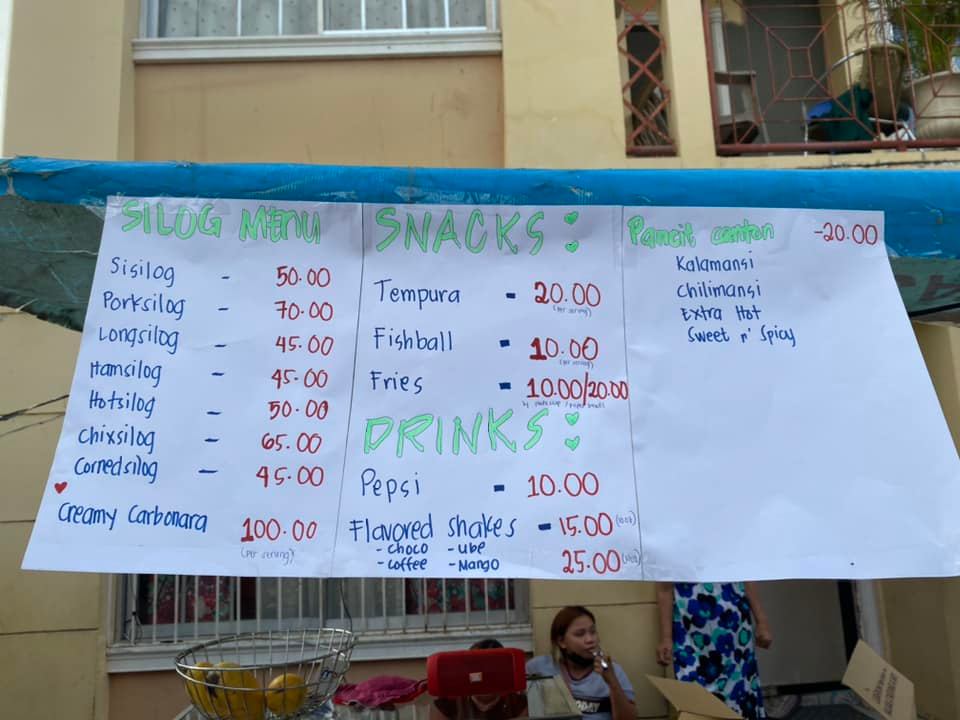 SILOG MENU
Sisilog - 50.00
Porksilog - 70.00
Longsilog - 45.00
Hamsilog - 45.00
Hotsilog - 50.00
Chixsilog - 65.00
Cornedsilog - 45.00
Creamy Carbonara 100.00
(per serving)
SNACKS :
Tempura - 20.00
(per serving)
Fishball - 10.00
(per serving)
Fries - 10.00/20.00
DRINKS :
Pepsi - 10.00
Flavored shakes - 15.00
- choco - ube
- coffee - Mango
25.00
Pancit canton -20.00
Kalamansi
Chilimansi
Extra Hot
Sweet n' Spicy